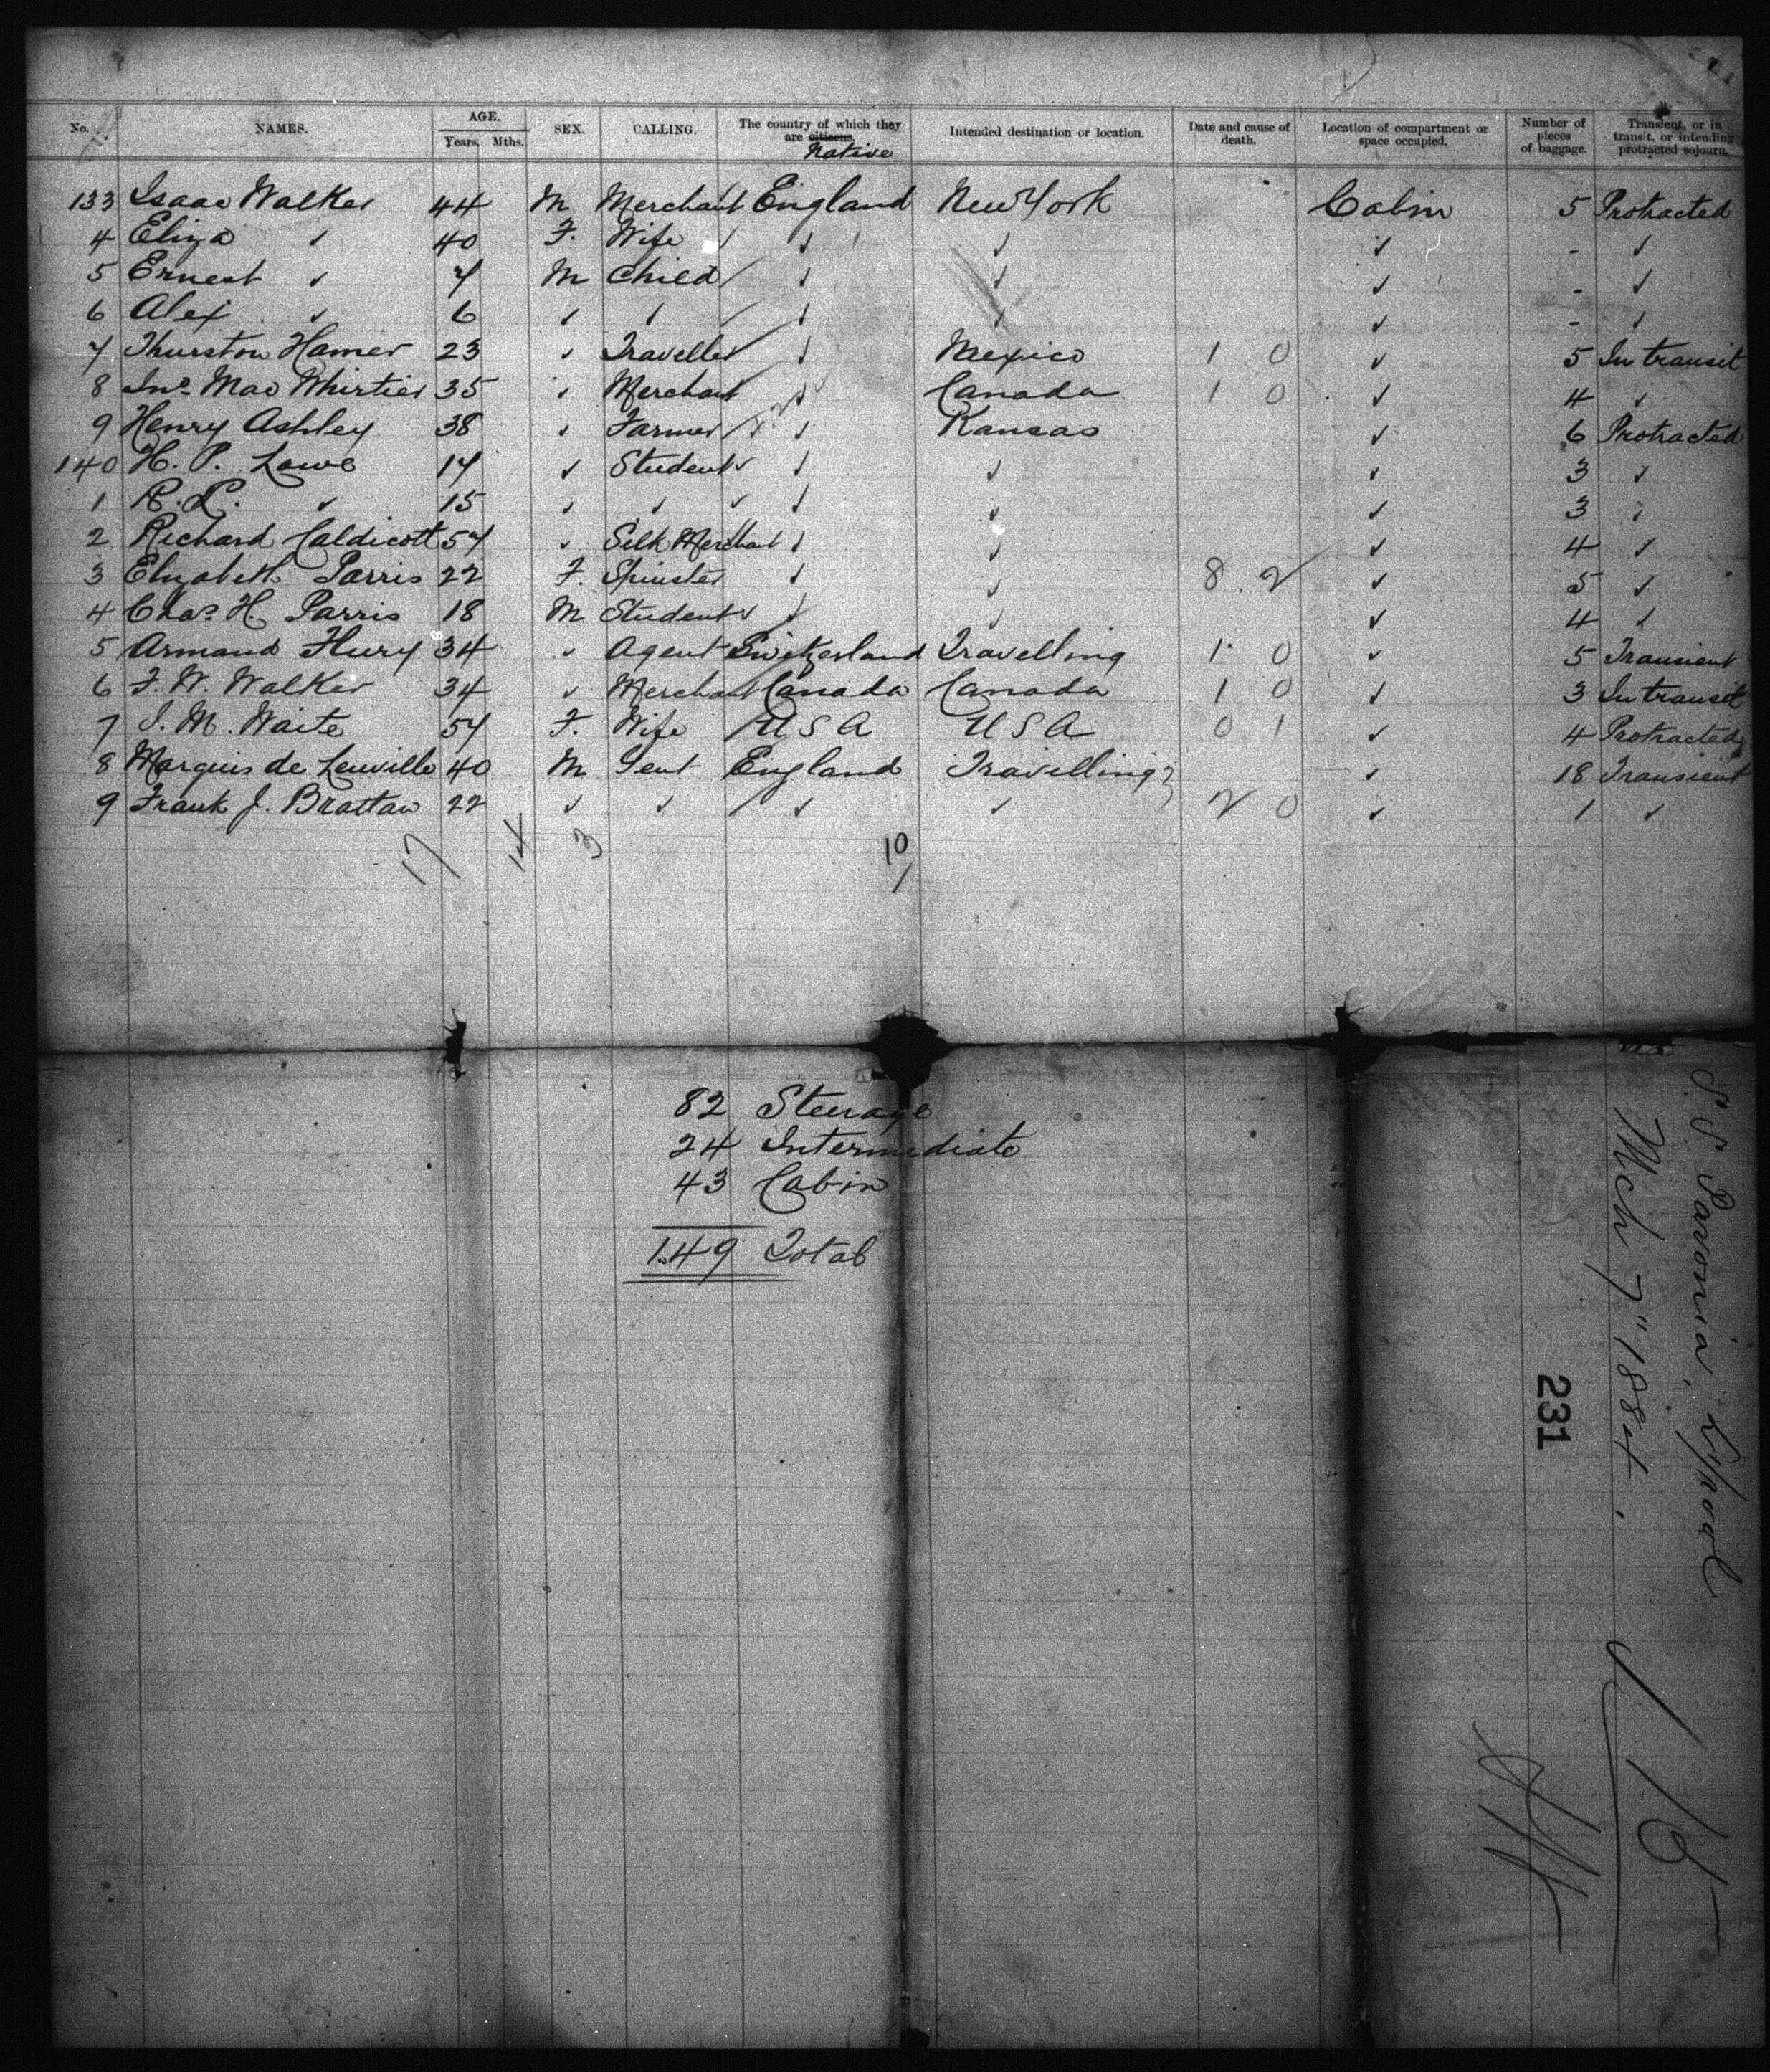 No. NAMES. AGE. Years. Mths. SEX. CALLING. The country of which they are citizens. Native Intended destination or location. Date and cause of death. Location of compartment or space occupied. Number of pieces of baggage. Transient, or in transit, or intending protracted sojourn.
133 Isaac Walker 44 M Merchant England New York Cabin 5 Protracted
4 Eliza ✓ 40 F. Wife ✓ ✓ ✓ - ✓
5 Ernest ✓ 7 M Child ✓ ✓ ✓ - ✓
6 Alex ✓ 6 ✓ ✓ ✓ ✓ ✓ - ✓
7 Thurston Hamer 23 ✓ Traveller ✓ Mexico 1 0 ✓ 5 In transit
8 Jno. Mac Whirtier 35 ✓ Merchant ✓ Canada 1 0 ✓ 4 ✓
9 Henry Ashley 38 ✓ Farmer ✓ Kansas ✓ 6 Protracted
140 H. P. Lowe 17 ✓ Student ✓ ✓ ✓ 3 ✓
1 R. L. ✓ 15 ✓ ✓ ✓ ✓ ✓ 3 ✓
2 Richard Caldicott 57 ✓ Silk Merchant ✓ ✓ ✓ 4 ✓
3 Elizabeth Parris 22 F. Spinster ✓ ✓ 8 2 ✓ 5 ✓
4 Chas. H. Parris 18 M Student ✓ ✓ ✓ 4 ✓
5 Armand Flury 34 ✓ Agent Switzerland Travelling 1 0 ✓ 5 Transient
6 F. W. Walker 34 ✓ Merchant Canada Canada 1 0 ✓ 3 In transit
7 J. M. Waite 57 F. Wife U S A U S A 0 1 ✓ 4 Protracted
8 Marquis de Leuville 40 M Gent England Travelling ✓ 18 Transient
9 Frank J. Brattan 22 ✓ ✓ ✓ ✓ 2 0 ✓ 1 ✓
17 14 3 10
82 Steerage
24 Intermediate
43 Cabin
149 Total
S.S. Pavonia, L'pool
Mch 7" 1884.
231